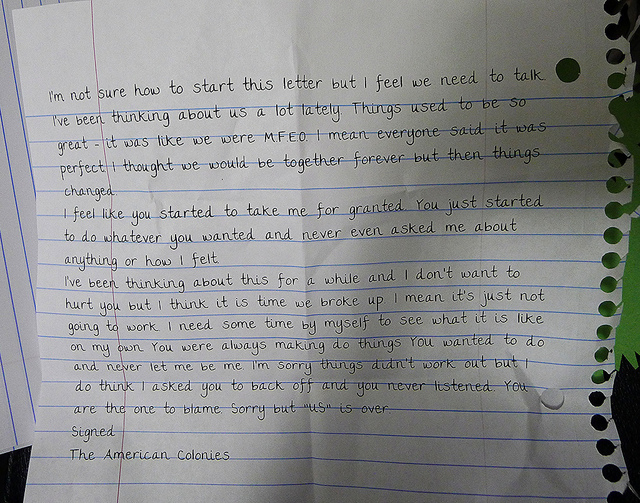 I'm not sure how to start this letter but I feel we need to talk.
I've been thinking about us a lot lately. Things used to be so
great - it was like we were M.F.E.O. I mean everyone said it was
perfect I thought we would be together forever but then things
changed.
I feel like you started to take me for granted. You just started
to do whatever you wanted and never even asked me about
anything or how I felt.
I've been thinking about this for a while and I don't want to
hurt you but I think it is time we broke up. I mean it's just not
going to work. I need some time by myself to see what it is like
on my own. You were always making do things You wanted to do
and never let me be me. I'm sorry things didn't work out but I
do think I asked you to back off and you never listened. You
are the one to blame. Sorry but "us" is over.
Signed
The American Colonies